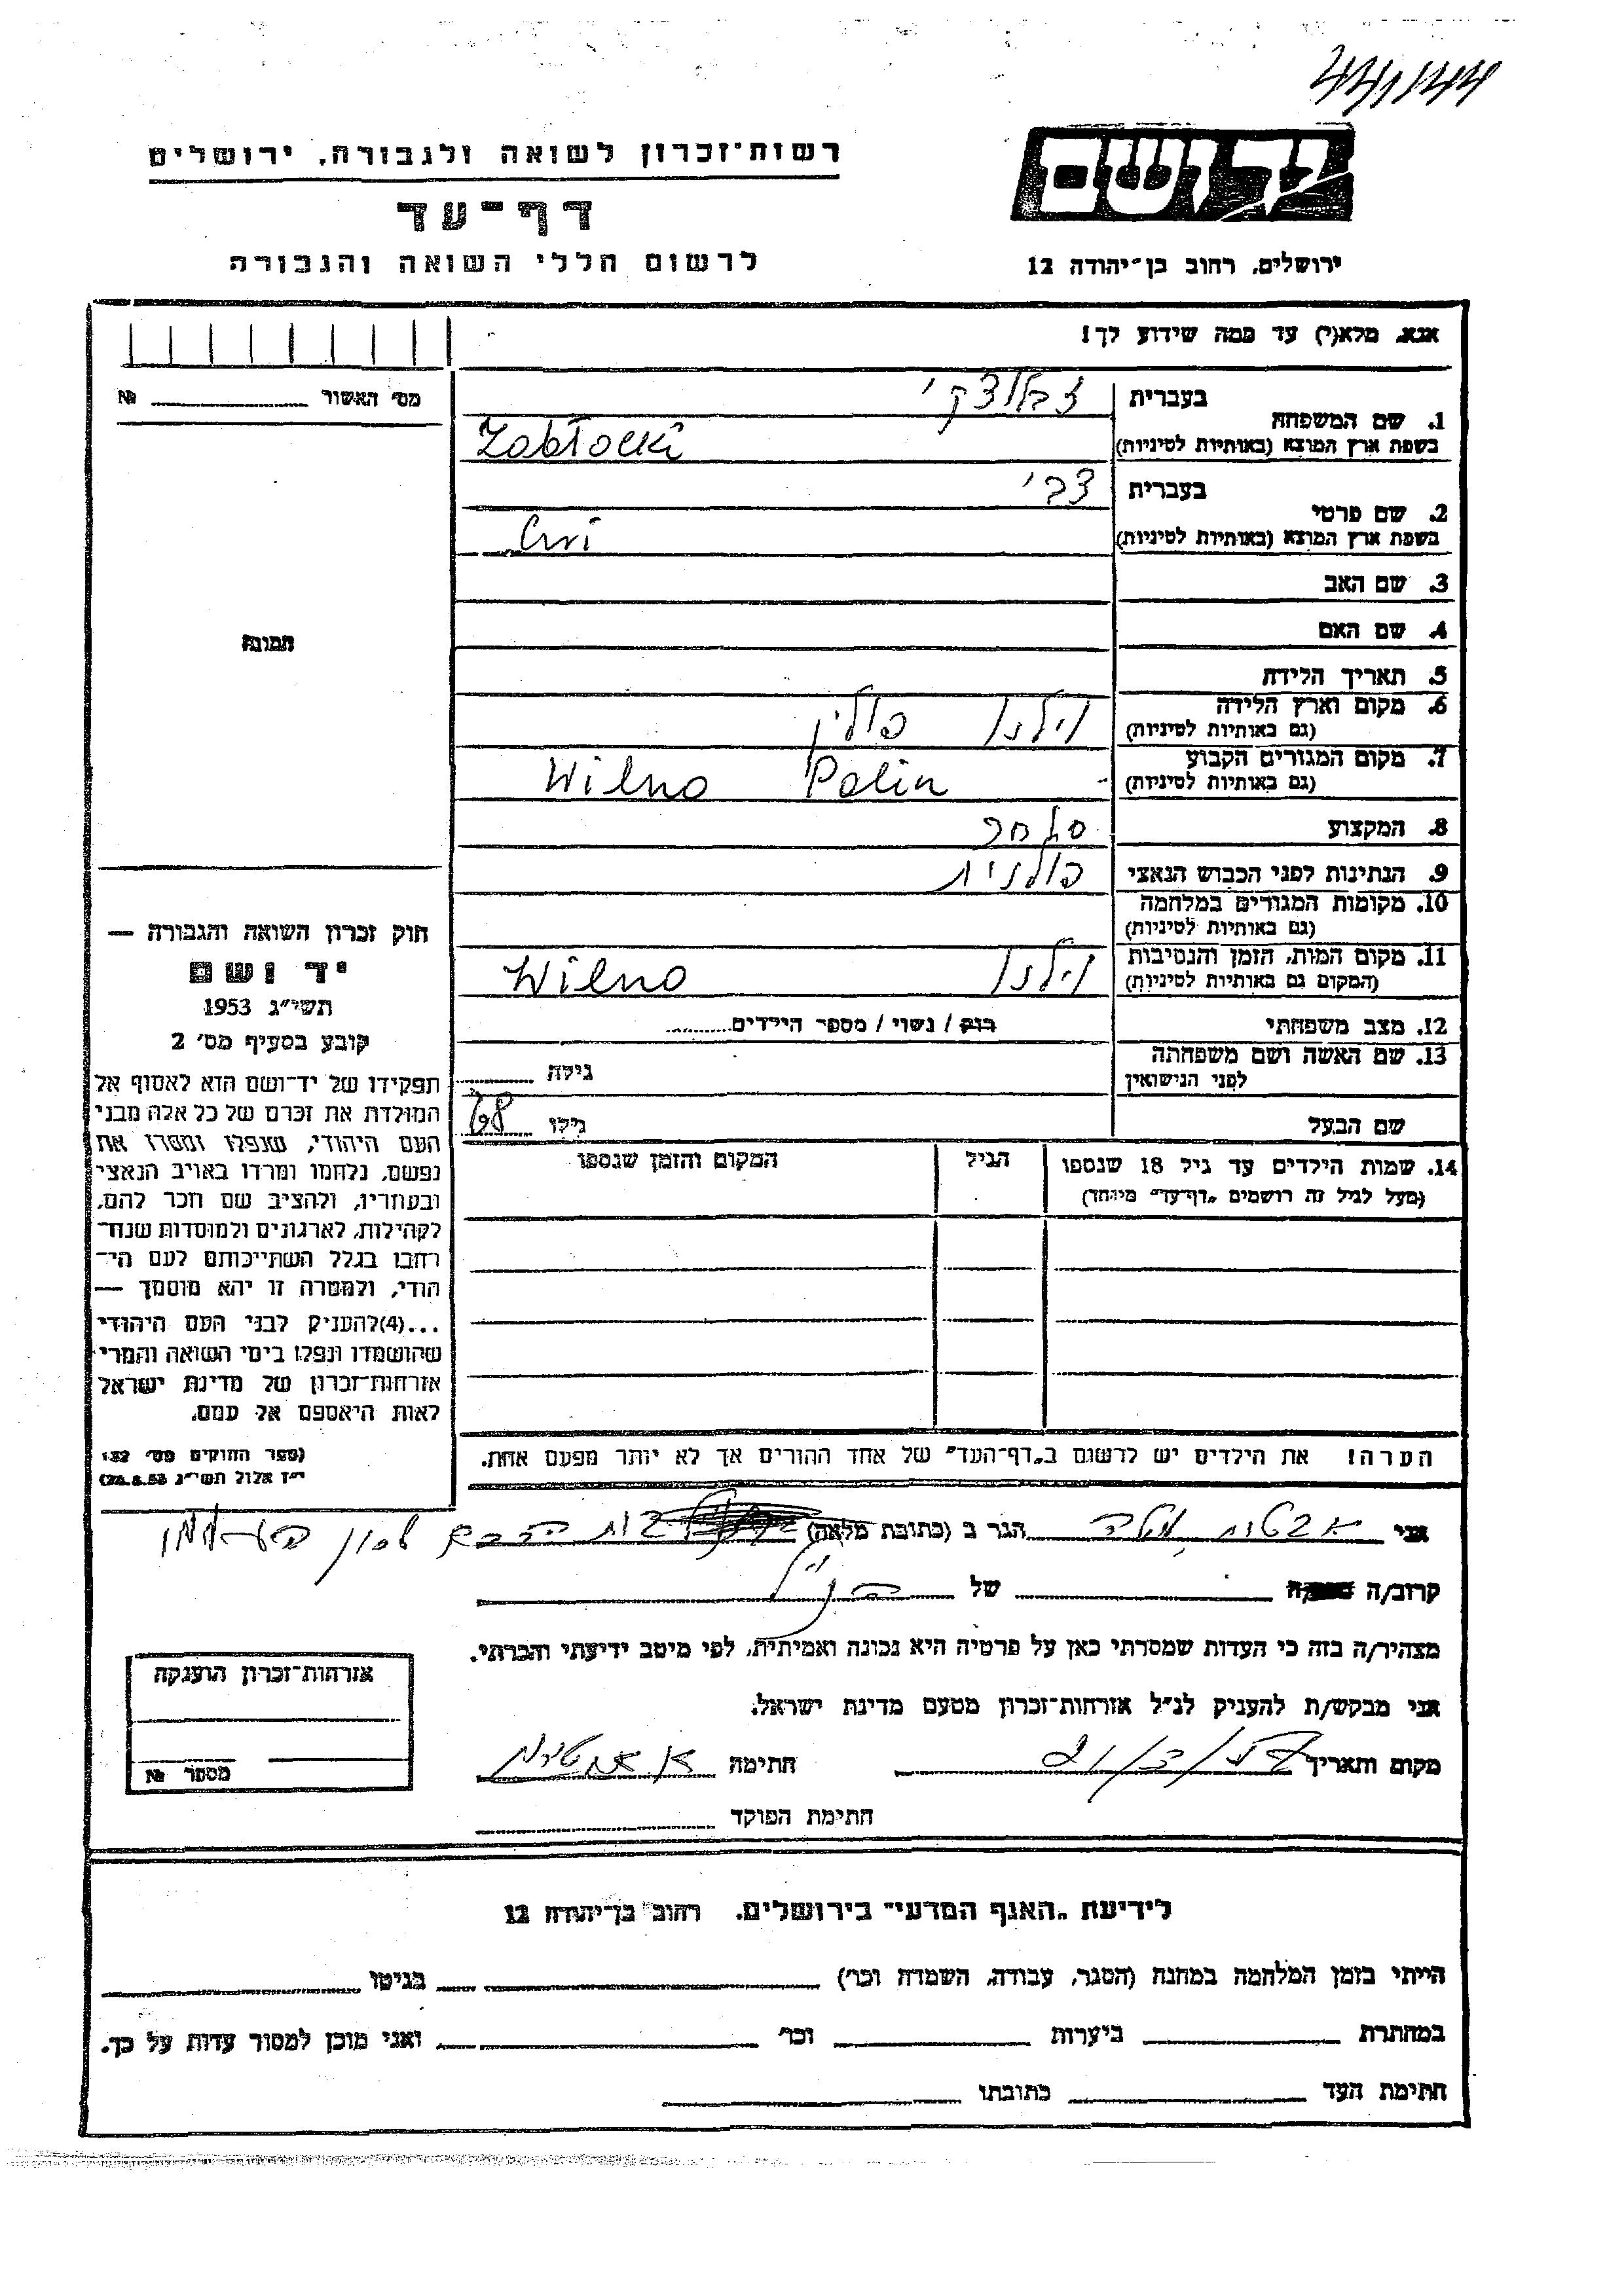 רשות־זכרון לשואה ולגבורה, ירושלים
דף־עד
לרשום חללי השואה והגבורה
יד ושם
ירושלים, רחוב בן־יהודה 12
אנא, מלא(י) עד כמה שידוע לך!
מס׳ האשור № ____
1. שם המשפחה בעברית זבלוצקי
בשפת ארץ המוצא (באותיות לטיניות) Zabłocki
2. שם פרטי בעברית צבי
בשפת ארץ המוצא (באותיות לטיניות) Cvi
3. שם האב
4. שם האם
תמונה
5. תאריך הלידה
6. מקום וארץ הלידה (גם באותיות לטיניות) וילנו פולין
7. מקום המגורים הקבוע (גם באותיות לטיניות) Wilno Polin
8. המקצוע סוחר
9. הנתינות לפני הכבוש הנאצי פולנית
10. מקומות המגורים במלחמה (גם באותיות לטיניות)
11. מקום המות, הזמן והנסיבות (המקום גם באותיות לטיניות) וילנו Wilno
12. מצב משפחתי רווק / נשוי / מספר הילדים
13. שם האשה ושם משפחתה לפני הנישואין גילה
שם הבעל גילו 68
14. שמות הילדים עד גיל 18 שנספו הגיל המקום והזמן שנספו
(מעל לגיל זה רושמים „דף־עד״ מיוחד)
חוק זכרון השואה והגבורה —
יד ושם
תשי״ג 1953
קובע בסעיף מס׳ 2
תפקידו של יד־ושם הוא לאסוף אל
המולדת את זכרם של כל אלה מבני
העם היהודי, שנפלו ומסרו את
נפשם, נלחמו ומרדו באויב הנאצי
ובעוזריו, ולהציב שם וזכר להם,
לקהילות, לארגונים ולמוסדות שנח־
רבו בגלל השתייכותם לעם הי־
הודי, ולמטרה זו יהא מוסמך —
...(4)להעניק לבני העם היהודי
שהושמדו ונפלו בימי השואה והמרי
אזרחות־זכרון של מדינת ישראל
לאות היאספם אל עמם.
(ספר החוקים מס׳ 132
י״ז אלול תשי״ג 28.8.53)
הערה! את הילדים יש לרשום ב„דף־העד״ של אחד ההורים אך לא יותר מפעם אחת.
אני הגר ב (כתובת מלאה)
קרוב/ה של הנ״ל
מצהיר/ה בזה כי העדות שמסרתי כאן על פרטיה היא נכונה ואמיתית, לפי מיטב ידיעתי והכרתי.
אני מבקש/ת להעניק לנ״ל אזרחות־זכרון מטעם מדינת ישראל.
מקום ותאריך חתימה
חתימת הפוקד
אזרחות־זכרון הוענקה
מספר №
לידיעת „האגף המדעי״ בירושלים, רחוב בן־יהודה 12
הייתי בזמן המלחמה במחנה (הסגר, עבודה, השמדה וכו׳) בגיטו
במחתרת ביערות וכו׳ ואני מוכן למסור עדות על כך.
חתימת העד כתובתו